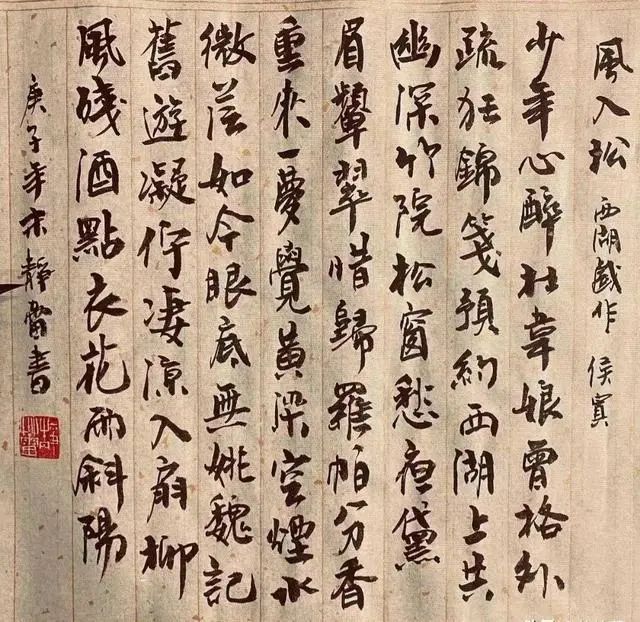 風入松 西湖戲作 侯寘
少年心醉杜韋娘曾格外
疏狂錦箋預約西湖上共
幽深竹院松窗愁夜黛
眉顰翠惜歸羅帕分香
重來一夢覺黃粱空煙水
微茫如今眼底無姚魏記
舊遊凝佇凄涼入扇柳
風殘酒點衣花雨斜陽
庚子年 靜雷書